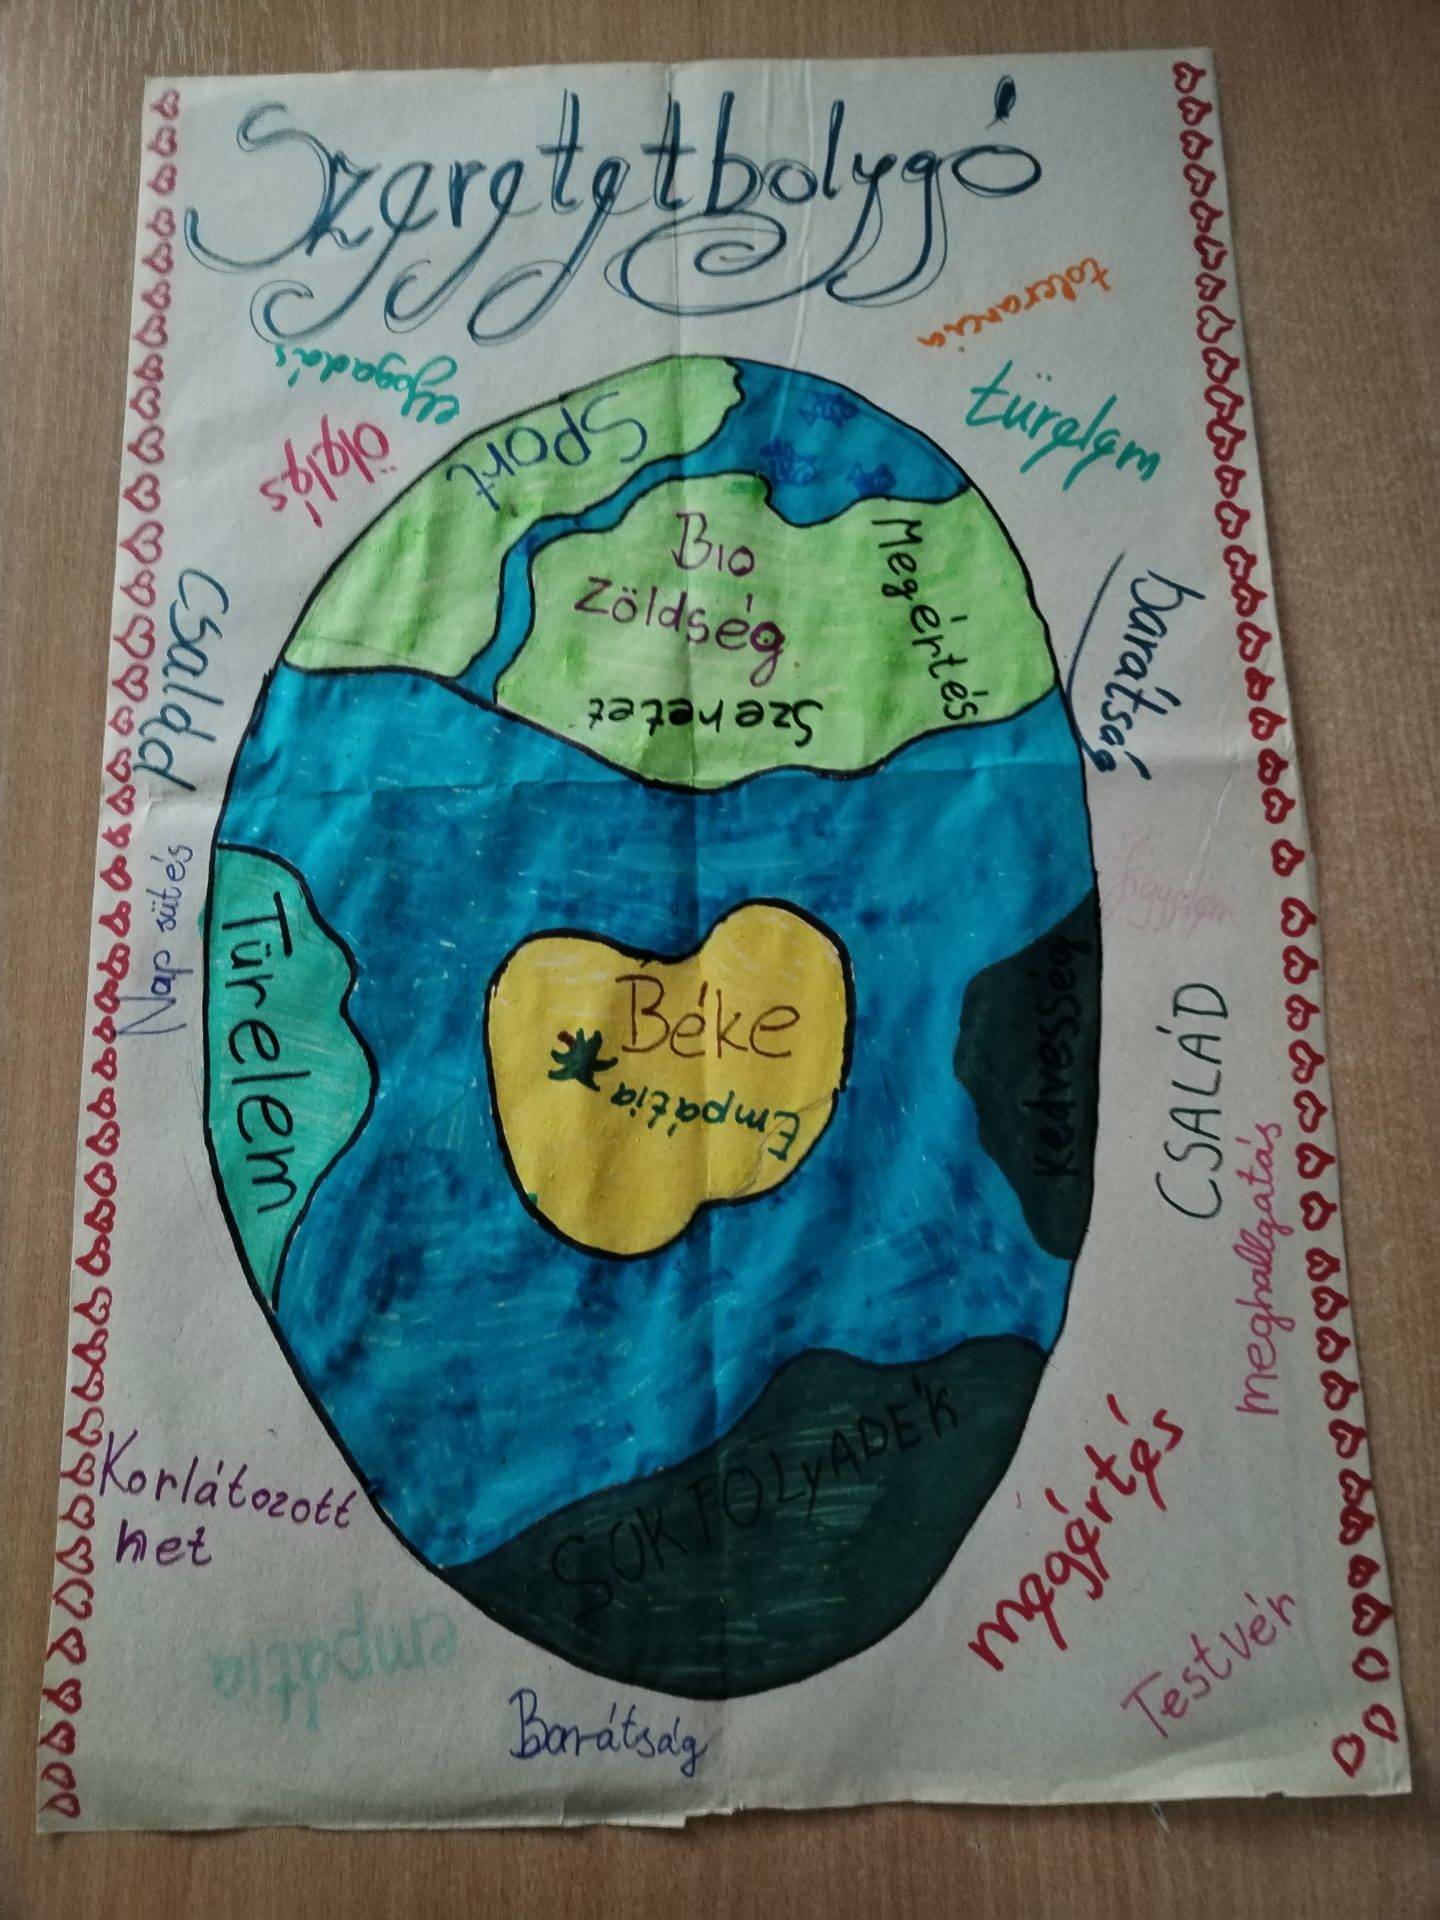 Szeretetbolygó
tolerancia
elfogadás
türelem
ölelés
Sport
Bio
Zöldség
Megértés
Szeretet
barátság
Család
Nap sütés
figyelem
Türelem
Béke
Empátia
Kedvesség
CSALÁD
meghallgatás
SOK FOLYADÉK
megértés
Korlátozott
net
empátia
Testvér
Barátság